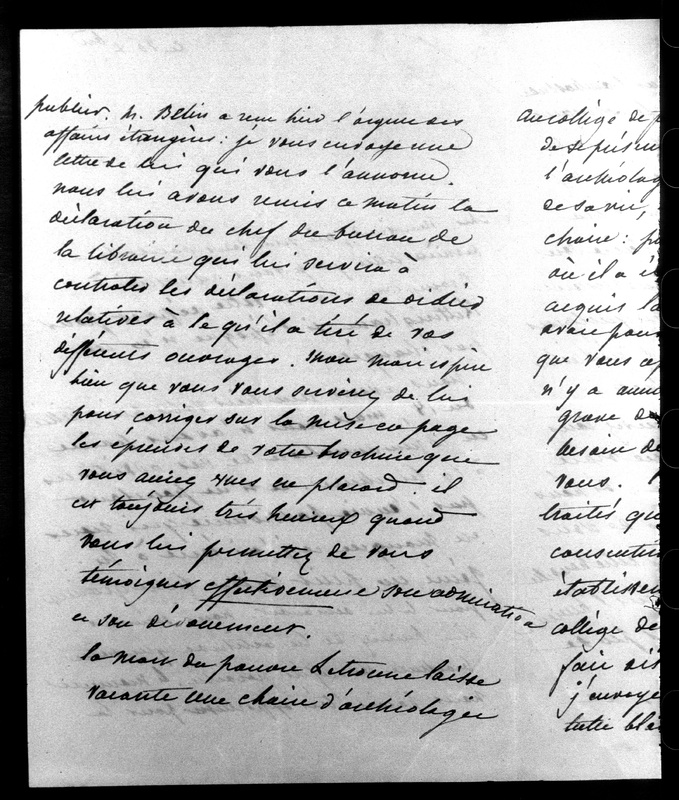 publier. M. Bélin a reçu hier l'argent des
affaires étrangères : je vous envoye une
lettre de lui qui vous l'annonce.
nous lui avons remis ce matin la
déclaration du chef du bureau de
la librairie qui lui servira à
controler les déclarations de didier
relatives à ce qu'il a tiré de vos
différents ouvrages. mon mari espère
bien que vous vous servirez de lui
pour corriger sur la mise en page
les épreuves de votre brochure que
vous aurez vues en placard. il
est toujours très heureux quand
vous lui permettez de vous
témoigner effectivement son admiration
et son dévouement.
la mort du pauvre Letronne laisse
vacante une chaire d'archéologie
au collége de p
de se présen
l'archéolog
de sa vie,
chaire : p
où il a é
acquis la
avait pour
que vous ap
n'y a aucun
grave de
besoin de
vous.
traités qu
consentim
établissem
collége de
fait
j'envoye
toute bla